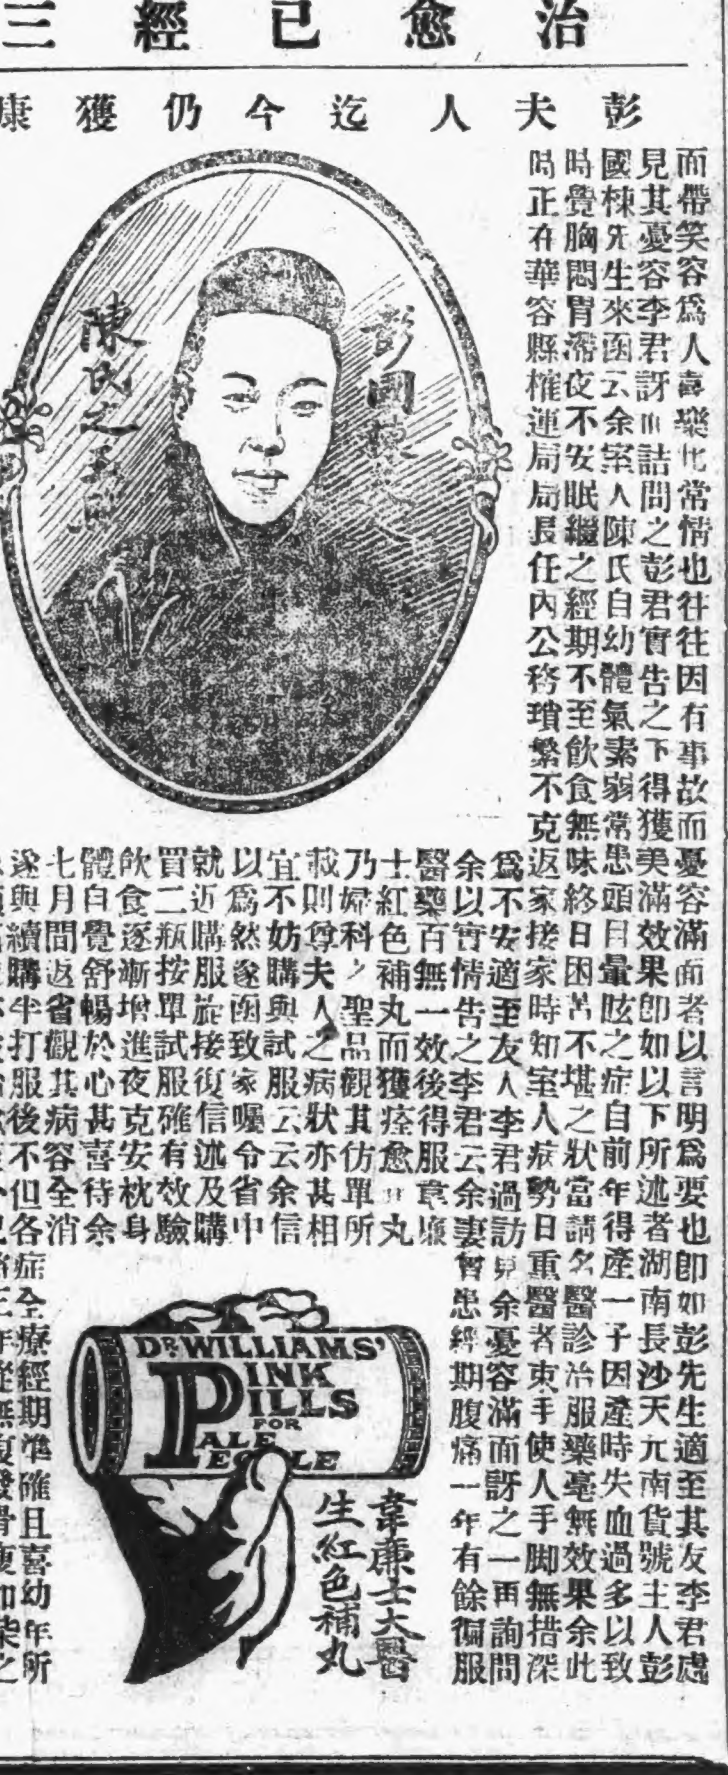 治愈已經三
彭夫人迄今仍獲康
而帶笑容爲人喜樂此常情也往往因有事故而憂容滿面者以言明爲要也卽如彭先生適至其友李君處
見其憂容李君訝而詰問之彭君實告之下得獲美滿效果卽如以下所述者湖南長沙天元南貨號主人彭
國棟先生來函云余室人陳氏自幼體氣素弱常患頭目暈眩之症自前年得產一子因產時失血過多以致
時覺胸悶胃滯夜不安眠繼之經期不至飲食無味終日困苦不堪之狀當請名醫診治服藥毫無效果余此
時正在華容縣榷運局局長任內公務瑣繁不克返家接家時知室人病勢日重醫者束手使人手脚無措深
爲不安適至友人李君過訪見余憂容滿面訝之一再詢問
余以實情告之李君云余妻曾患經期腹痛一年有餘徧服
醫藥百無一效後得服韋廉
士紅色補丸而獲痊愈此丸
乃婦科之聖品觀其仿單所
載則尊夫人之病狀亦甚相
宜不妨購與試服云云余信
以爲然遂函致家囑令省中
就近購服旋接復信述及購
買二瓶按單試服確有效驗
飲食逐漸增進夜克安枕身
體自覺舒暢於心甚喜待余
七月間返省觀其病容全消
遂與續購半打服後不但各症全療經期準確且喜幼年所
彭國棟
陳氏之玉
DR WILLIAMS'
PINK
PILLS
FOR
PALE
PEOPLE
韋廉士大醫
生紅色補丸